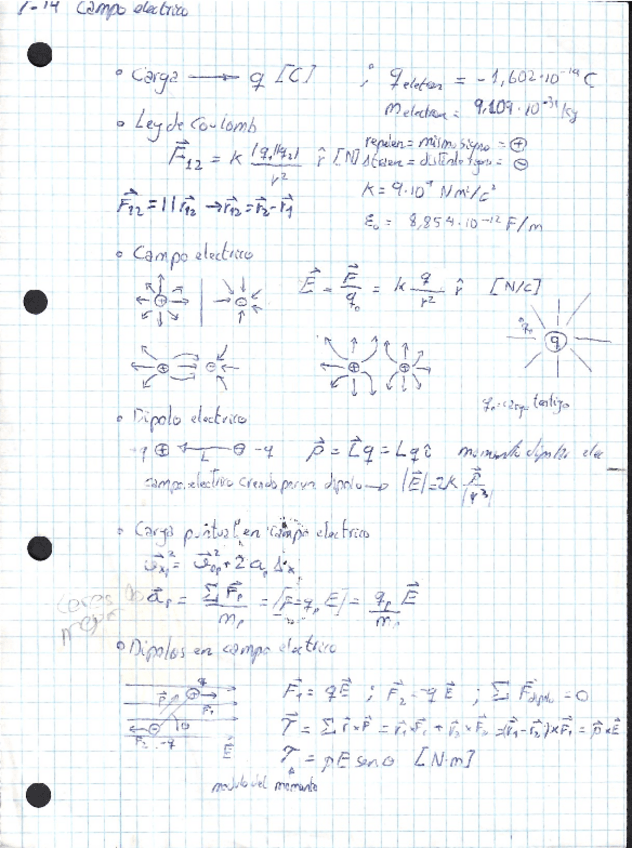 1-14 Campo electrico
• Carga → q [C] ; q electron = -1,602·10^-19 C
m electron = 9,109·10^-31 kg
• Ley de Coulomb
F⃗12 = k |q1||q2| / r² r̂ [N]
repelen = mismo signo = ⊕
atraen = distinto signo = ⊖
K = 9·10^9 Nm²/C²
F⃗12 = || r⃗12 → r⃗12 = r⃗2 - r⃗1
ε0 = 8,854·10^-12 F/m
• Campo electrico
E⃗ = F⃗/q0 = k q/r² r̂ [N/C]
q0
q
q0 = carga testigo
• Dipolo electrico
q ⊕ ← L ⊖ -q p⃗ = L⃗q = Lqî momento dipolar elec
campo electrico creado por un dipolo → |E⃗| = 2K p⃗/|r³|
• Carga puntual en campo electrico
+ 2 ap Δx
a⃗p = ΣF⃗p / mp = [F = qp E] = qp/mp E⃗
• Dipolos en campo electrico
q
p⃗ F⃗1
θ
F⃗2 -q E⃗
F⃗1 = qE⃗ ; F⃗2 = -qE⃗ ; ΣF⃗dipolo = 0
τ⃗ = Σ r⃗×F⃗ = r⃗1×F⃗1 + r⃗2×F⃗2 = (r⃗1 - r⃗2)×F⃗1 = p⃗×E⃗
τ = pE sen θ [N·m]
modulo del momento